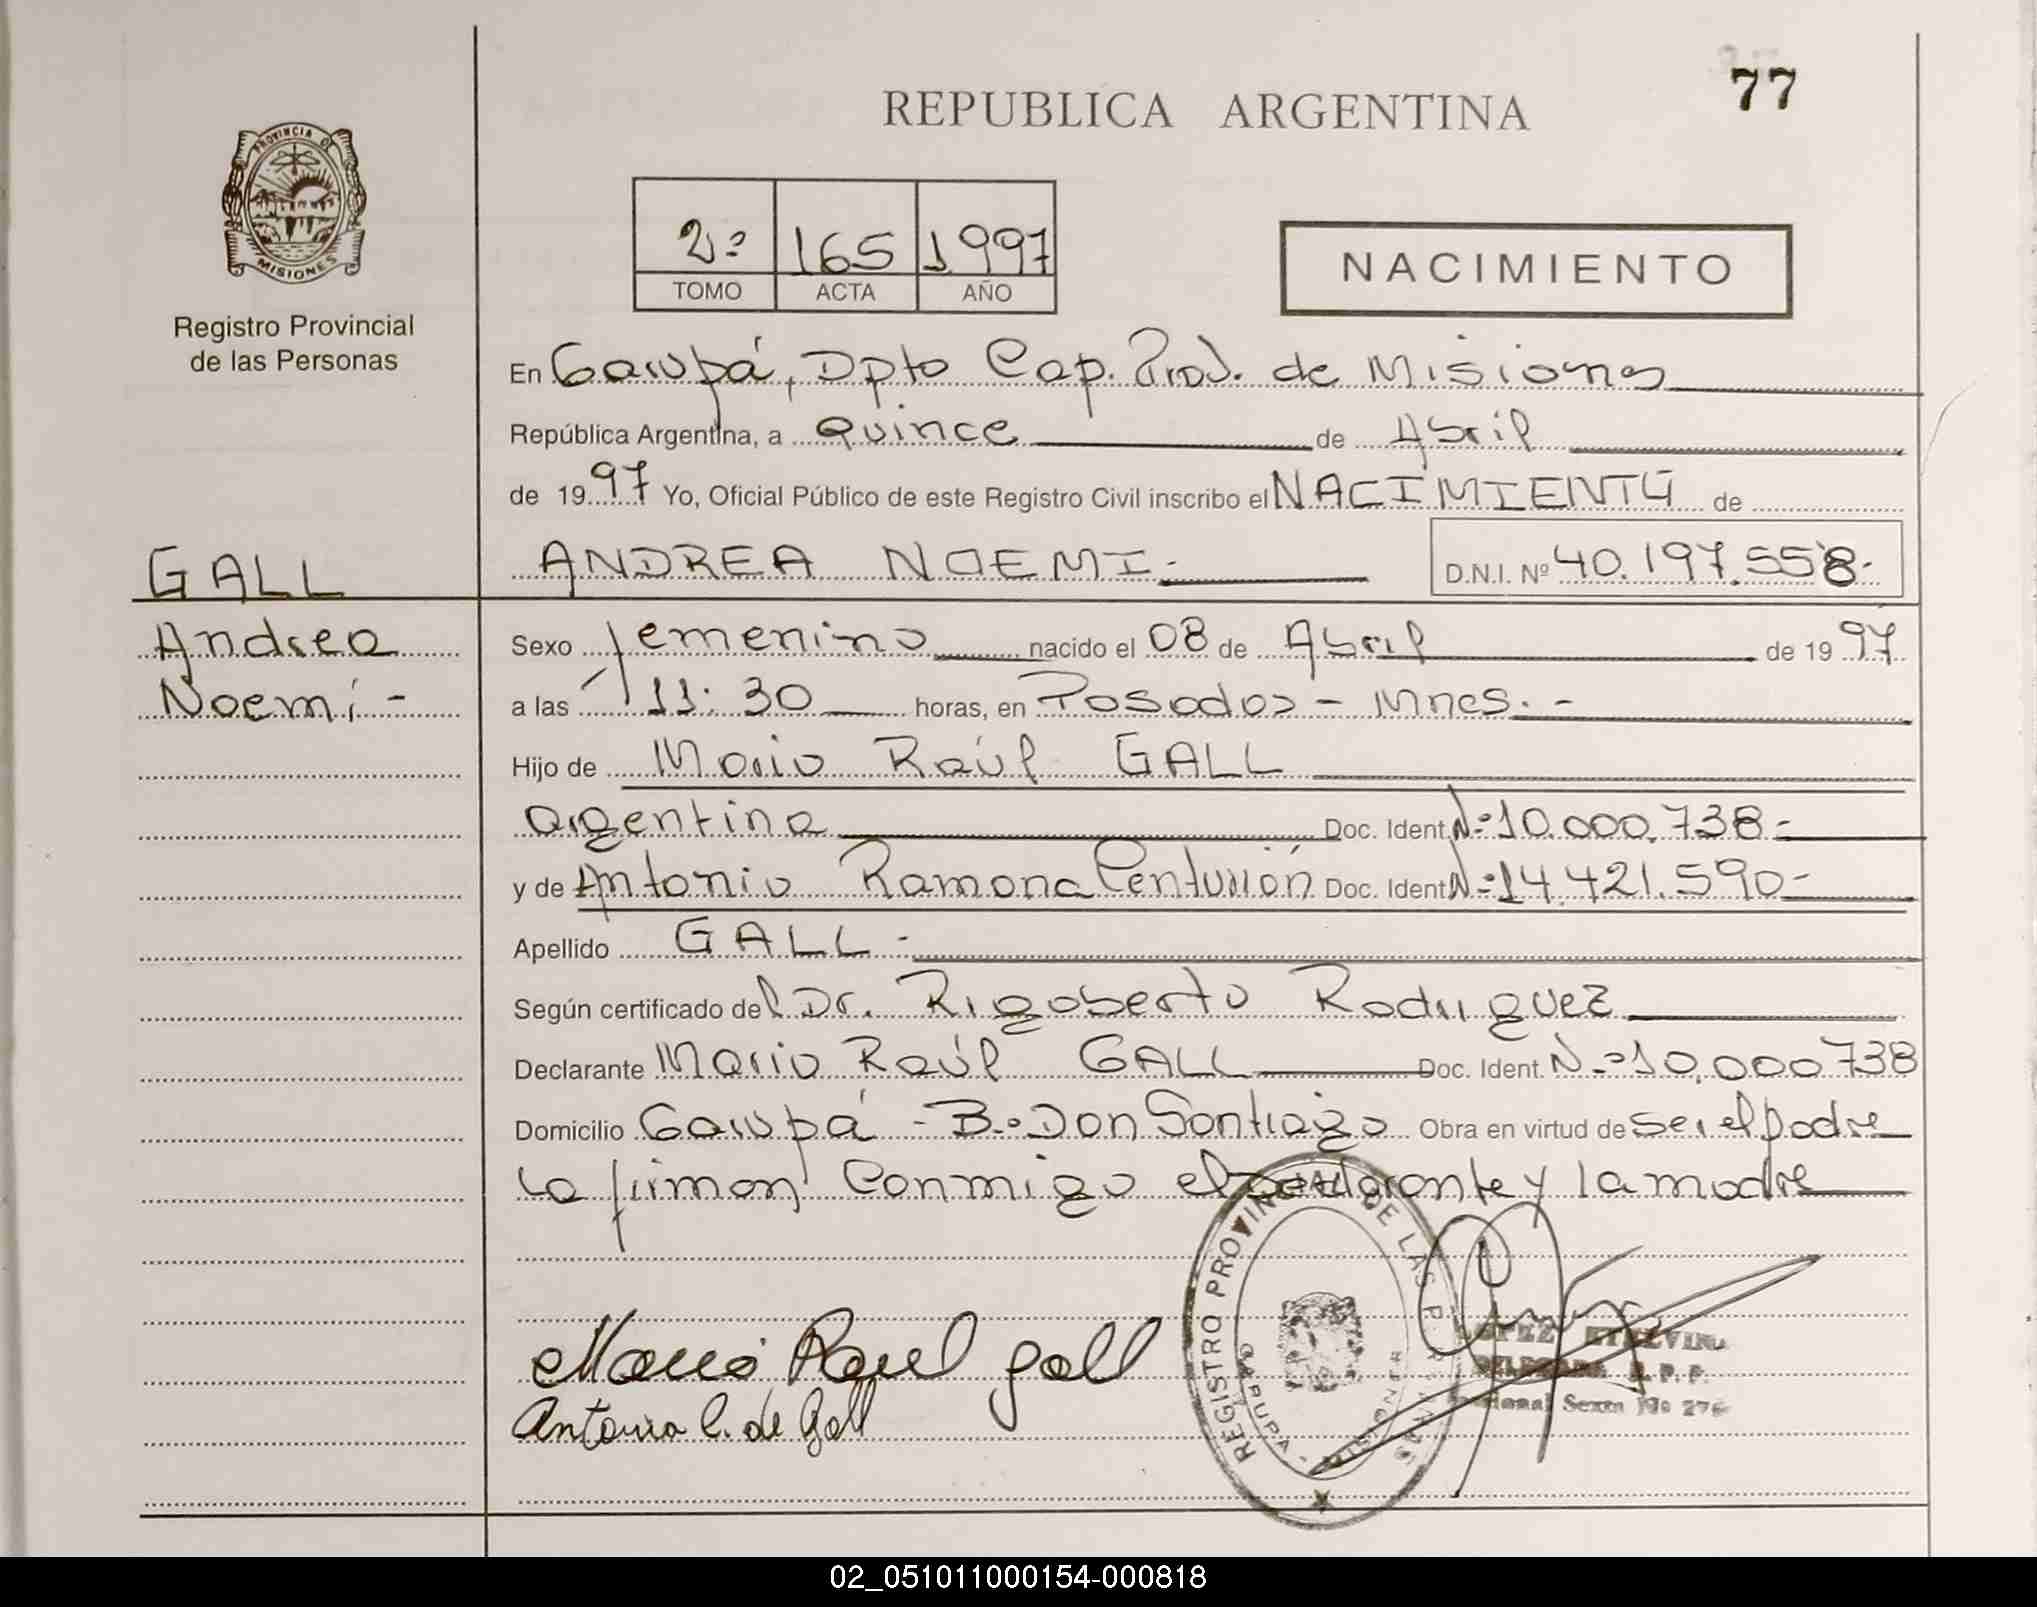 77
REPUBLICA ARGENTINA
PROVINCIA DE
MISIONES
Registro Provincial
de las Personas
2º 165 1997
TOMO ACTA AÑO
NACIMIENTO
En Garupá, Dpto Cap. Prov. de Misiones
República Argentina, a Quince de Abril
de 1997 Yo, Oficial Público de este Registro Civil inscribo el NACIMIENTO de
GALL
ANDREA NOEMI.- D.N.I. Nº 40.197.558.
Andrea
Noemí -
Sexo femenino nacido el 08 de Abril de 1997
a las 11:30 horas, en Posadas - Mnes. -
Hijo de Mario Raúl GALL
argentina Doc. Ident. Nº 10.000.738-
y de Antonia Ramona Centurión Doc. Ident. Nº 14.421.590-
Apellido GALL -
Según certificado del Dr. Rigoberto Rodriguez
Declarante Mario Raúl GALL Doc. Ident. Nº 10.000738
Domicilio Garupá - Bº Don Santiago Obra en virtud de ser el padre
La firman conmigo el declarante y la madre
Mario Raul Gall
Antonia C. de Gall
REGISTRO PROVINCIAL DE LAS PERSONAS
GARUPA - MISIONES
ETELVINA
DELEGADA R. P. P.
Sexta Nº 276
02_051011000154-000818